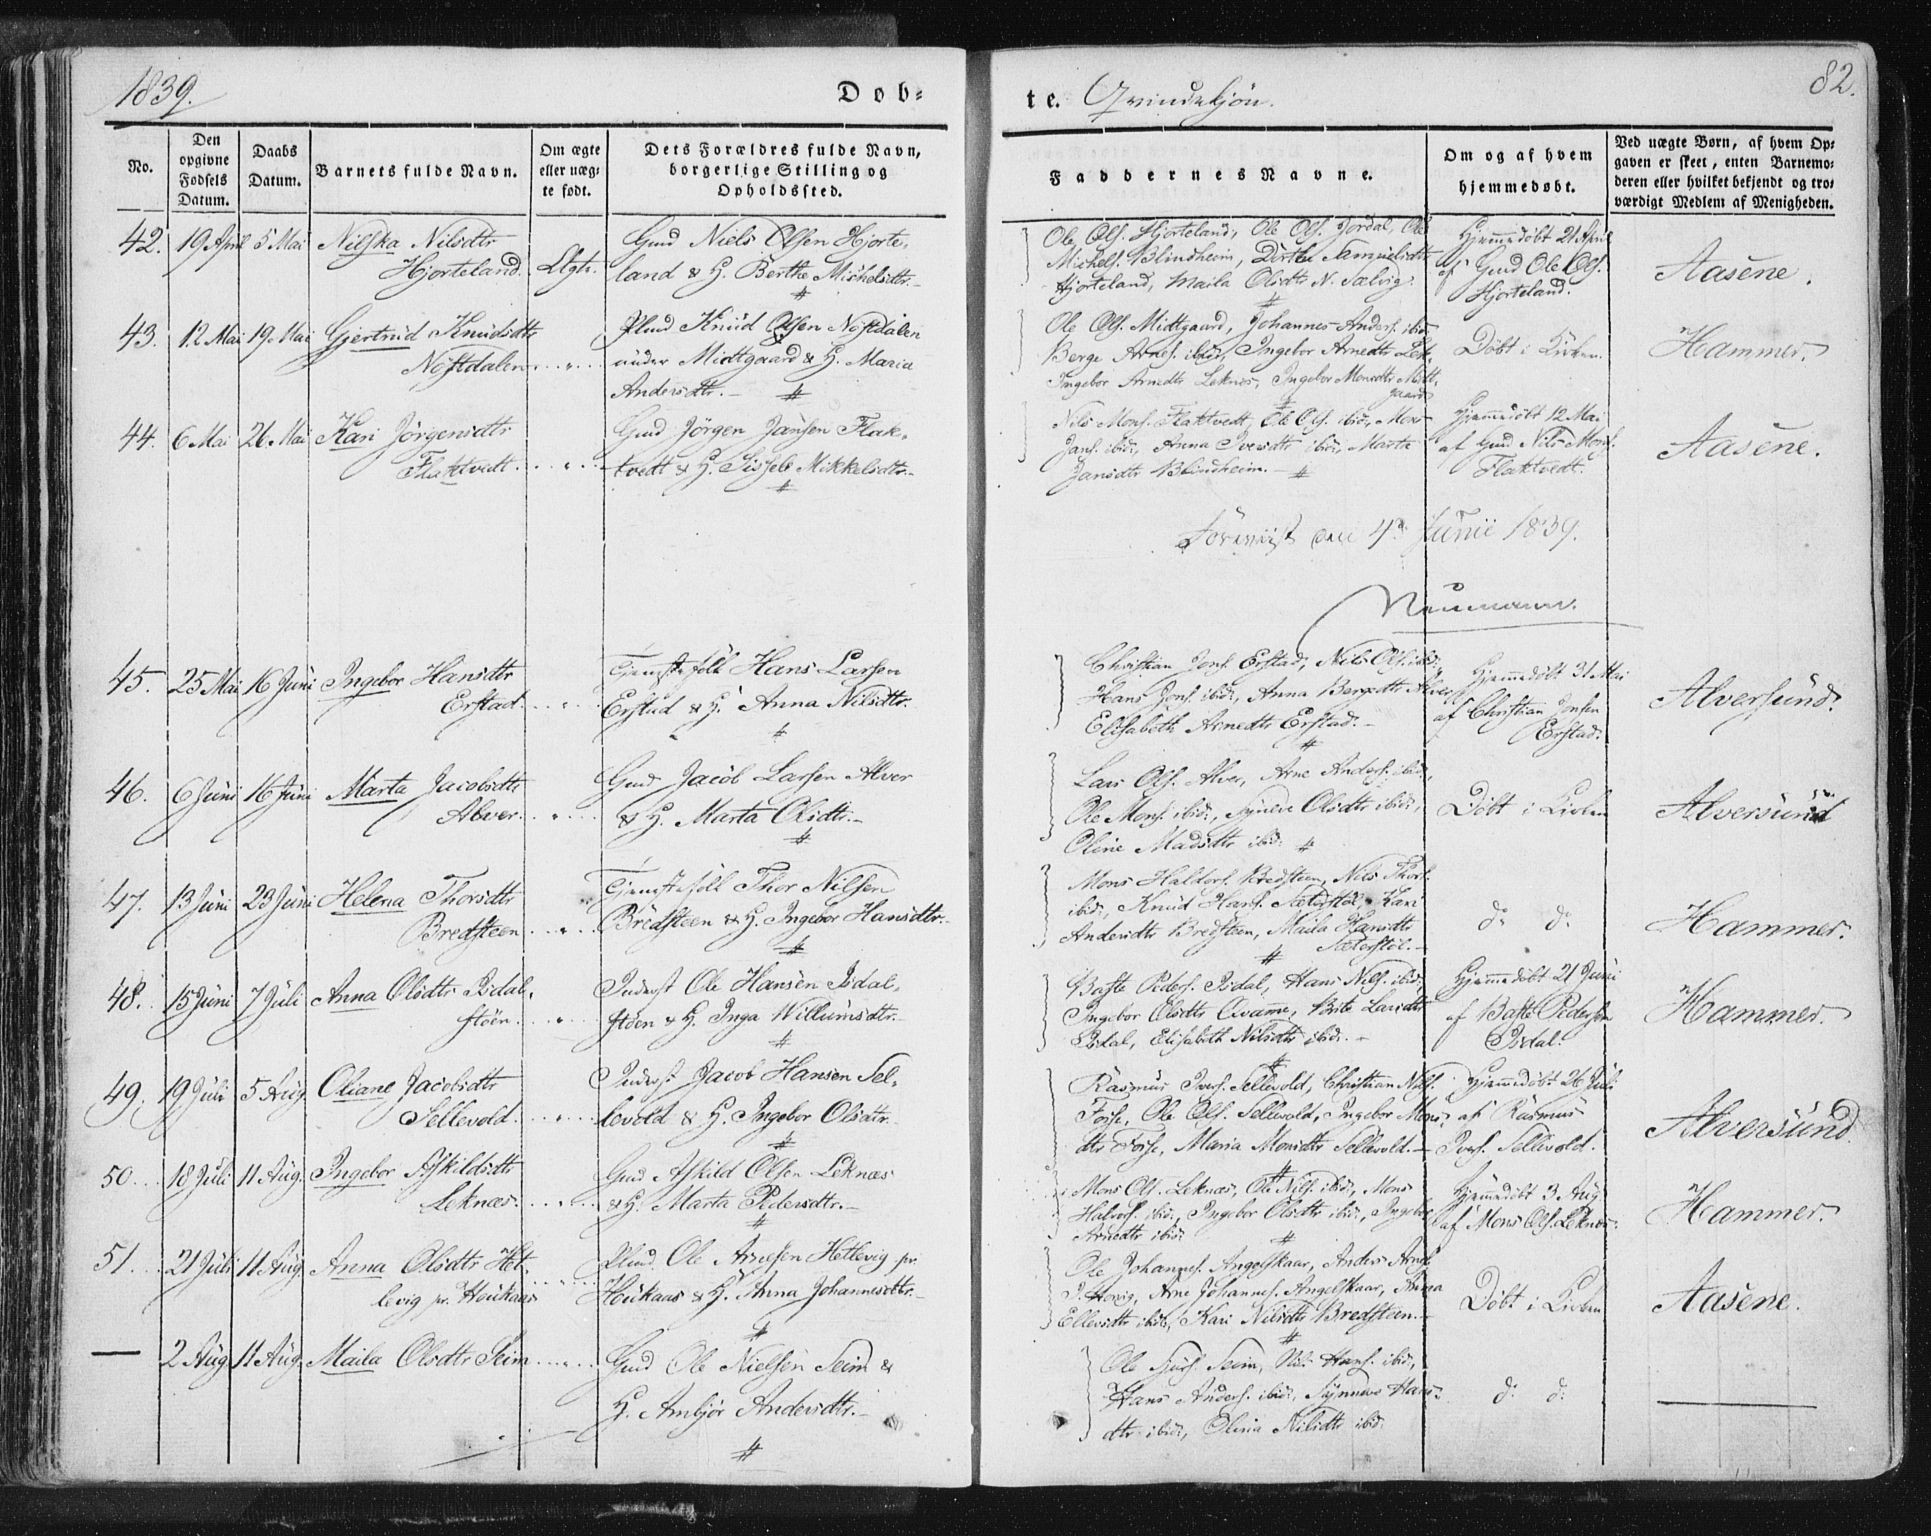 1839.
Døb-
te. Qvindekjøn.
82.
No.
Den opgivne Fødsels Datum.
Daabs Datum.
Barnets fulde Navn.
Om ægte eller uægte født.
Dets Forældres fulde Navn, borgerlige Stilling og Opholdssted.
Faddernes Navne.
Om og af hvem hjemmedøbt.
Ved uægte Børn, af hvem Opgaven er skeet, enten Barnemoderen eller hvilket bekjendt og troværdigt Medlem af Menigheden.
42. 19 April 5 Mai Nilska Nilsdtr
Hjorteland. Ægte.
Gmd Niels Olsen Hjorte-
land & H. Berthe Michelsdtr.
Ole Ols. Hjorteland, Ole Ols. Jordal, Ole
Michels. Blindheim, Dorthe Samuelsdtr
Hjorteland, Maila Olsdtr N. Sælvig.
Hjemmedøbt 21 April
af Gmd Ole Ols.
Hjorteland.
Aasene.
43. 12 Mai 19 Mai Gjertrud Knudsdtr
Nøstdalen
Plmd Knud Olsen Nøstdalen
under Midtgaard & H. Maria
Andersdtr.
Ole Ols. Midtgaard, Johannes Anders. ibid.
Berge Arnes. ibid., Ingebor Arnedtr Lek-
Ingebor Arnedtr Leknes, Ingebor Monsdtr Midt-
gaard
Døbt i Kirken.
Hammer.
44. 6 Mai 26 Mai Kari Jörgensdtr
Flaktvedt.
Gmd Jörgen Jansen Flak-
tvedt & H. Sissele Mikkelsdtr.
Nils Mons. Flaktvedt, Ole Ols. ibid., Mons
Jans. ibid., Anna Iversdtr ibid., Marta
Jansdtr Blindheim.
Hjemmedøbt 12 Mai
af Gmd Nils Mons.
Flaktvedt.
Aasene.
den 4de Junii 1839.
Neumann.
45. 25 Mai 16 Juni Ingebor Hansdtr
Erstad.
Tjenestefolk Hans Larsen
Erstad & H. Anna Nilsdtr.
Christian Jons. Erstad, Nils Ols. ibid.,
Hans Jons. ibid., Anna Bergedtr Alver
Elisabeth Arnedtr Erstad.
Hjemmedøbt 31 Mai
af Christian Jonsen
Erstad.
Alversund.
46. 6 Juni 16 Juni Marta Jacobsdtr
Alver.
Gmd Jacob Larsen Alver
& H. Marta Olsdtr.
Lars Ols. Alver, Arne Anders. ibid.,
Ole Mons. ibid., Synneve Olsdtr ibid.,
Oline Madsdtr ibid.
Døbt i Kirken
Alversund
47. 13 Juni 23 Juni Helena Thorsdtr
Bredsteen
Tjenestefolk Thor Nilsen
Bredsteen & H. Ingebor Hansdtr.
Mons Haldors. Bredsteen, Nils Thors.
ibid., Knud Hans. Sæterstöl, Kari
Andersdtr Bredsteen, Maila Hansdtr
Sæterstöl.
do do
Hammer.
48. 15 Juni 7 Juli Anna Olsdtr Isdal-
stöen.
Inderst Ole Hansen Isdal-
stöen & H. Inga Willumsdtr.
Baste Peders. Isdal, Hans Nils. ibid.,
Ingebor Olsdtr Qvamme, Brite Larsdtr
Isdal, Elisabeth Nilsdtr ibid.
Hjemmedøbt 21 Juni
af Baste Pedersen
Isdal.
Hammer.
49. 19 Juli 5 Aug. Oliane Jacobsdtr
Sellevold.
Inderst Jacob Hansen Sel-
levold & H. Ingebor Olsdtr.
Rasmus Ivers. Sellevold, Christian Nils.
Fosse, Ole Ols. Sellevold, Ingebor Mons-
dtr Fosse, Maria Monsdtr Sellevold.
Hjemmedøbt 26 Juli
af Rasmus
Ivers. Sellevold.
Alversund.
50. 18 Juli 11 Aug. Ingebor Askildsdtr
Leknæs.
Gmd Askild Olsen Leknæs
& H. Marta Pedersdtr.
Mons Ols. Leknæs, Ole Nils. ibid., Mons
Haldors. ibid., Ingebor Olsdtr ibid., Ingebor
Arnedtr ibid.
Hjemmedøbt 3 Aug
af Mons Ols. Leknæs.
Hammer.
51. 21 Juli 11 Aug. Anna Olsdtr Het-
levig pr. Houkaas
Plmd. Ole Arnesen Hetlevig pr.
Houkaas & H. Anna Johannesdtr.
Ole Johannes. Angelskaar, Anders Arnes.
Arne Johannes. Angelskaar, Anna
Ellevsdtr ibid., Kari Nilsdtr Bredsteen.
Døbt i Kirken
Aasene.
— 2 Aug. 11 Aug. Maila Olsdtr Seim
Gmd Ole Nielsen Seim &
H. Ambjör Andersdtr.
Ole Seim, Nils Hans. ibid.,
Hans Anders. ibid., Synneve Hans-
dtr ibid., Olina Nilsdtr ibid.
do do